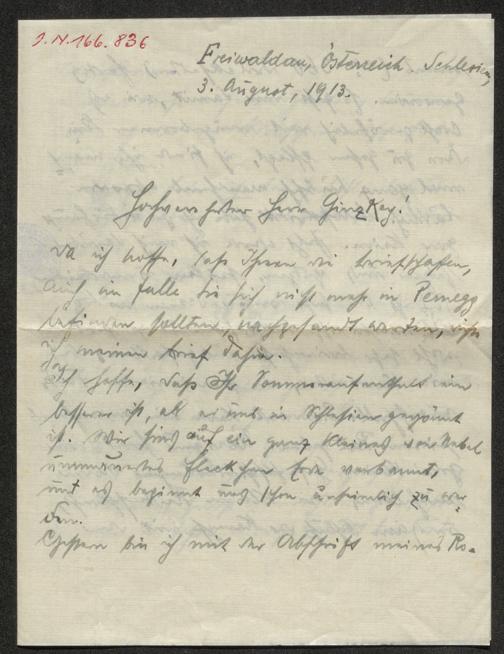 J.N. 166.836
Freiwaldau, Österreich Schlesien,
3. August, 1913.
Hochverehrter Herr Ginzkey!
Da ich hoffe, daß Ihnen die Briefschaften,
auch im Falle Sie sich nicht mehr in Pernegg
befinden sollten, nachgesandt werden, richte
ich meinen Brief dahin.
Ich hoffe, daß Ihr Sommeraufenthalt ein
besserer ist, als er uns in Schlesien gegönnt
ist. Wir sind auf ein ganz kleines von Nebel
ummauertes Fleckchen Erde verbannt,
und es beginnt uns schon unheimlich zu wer-
den.
Gestern bin ich mit der Abschrift meines Ro-